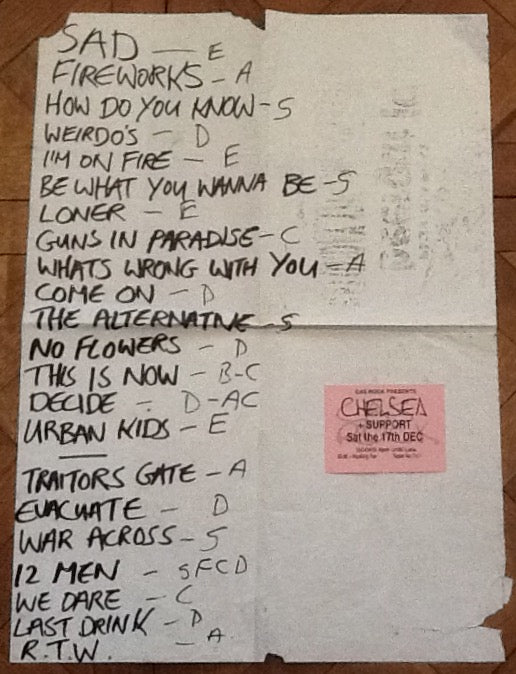 SAD — E
FIREWORKS - A
HOW DO YOU KNOW - S
WEIRDO'S - D
I'M ON FIRE - E
BE WHAT YOU WANNA BE - S
LONER - E
GUNS IN PARADISE - C
WHATS WRONG WITH YOU - A
COME ON - D
THE ALTERNATIVE - S
NO FLOWERS - D
THIS IS NOW - B-C
DECIDE - D-AC
URBAN KIDS - E
TRAITORS GATE - A
EVACUATE - D
WAR ACROSS - S
12 MEN - SFCD
WE DARE - C
LAST DRINK - D
R.T.W. - A.
GAS ROCK PRESENTS
CHELSEA
+ SUPPORT
Sat the 17th DEC